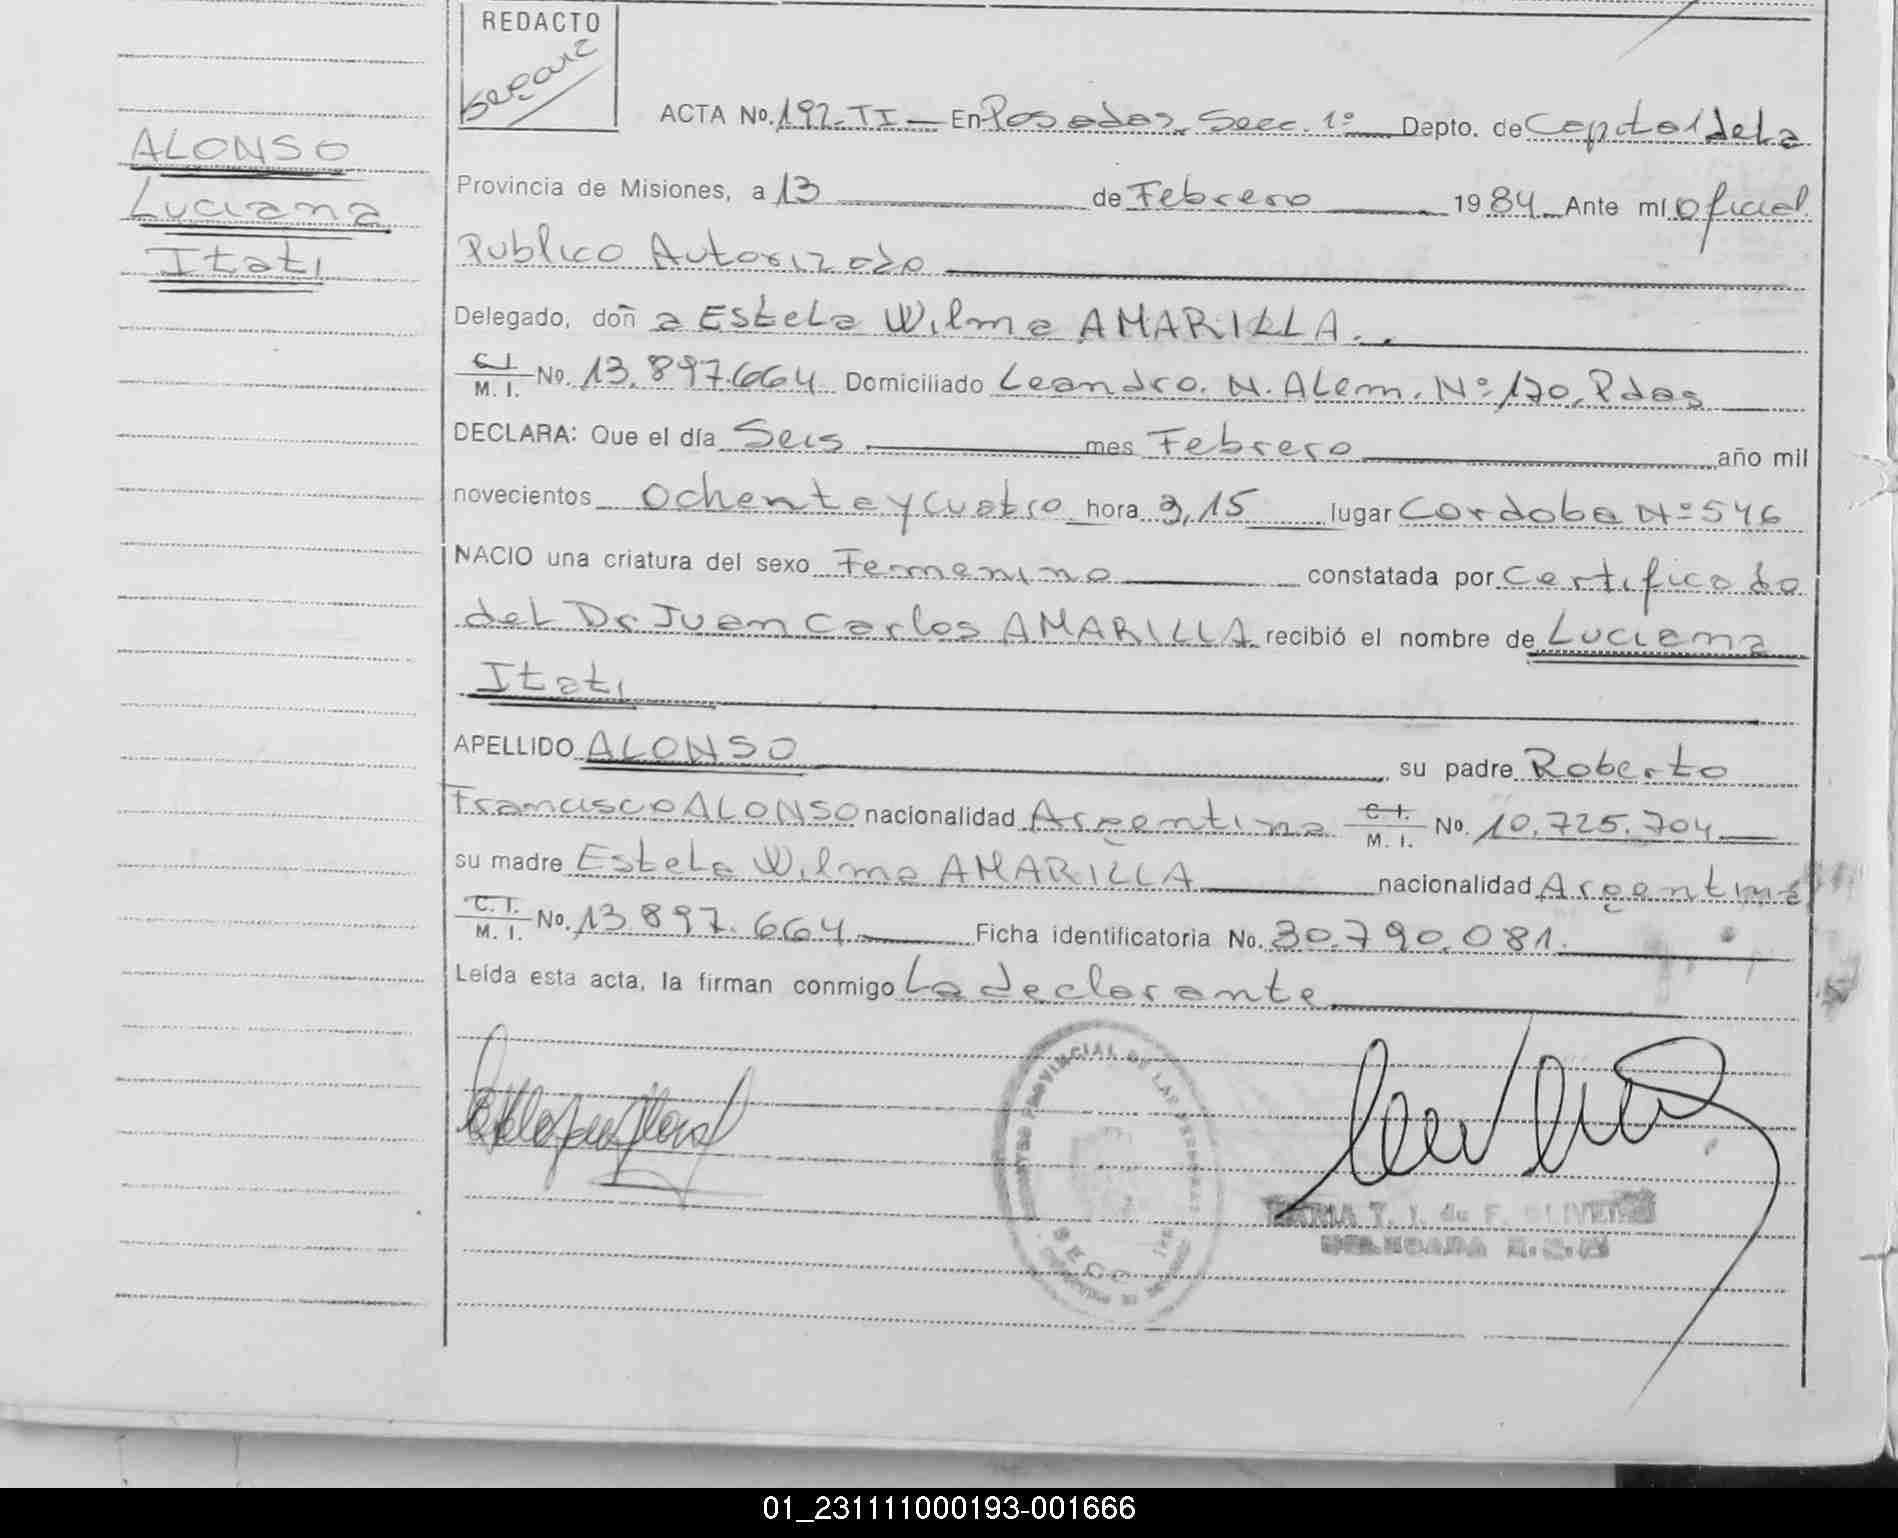 REDACTO
ALONSO
Luciana
Itati
ACTA No. 192-TI — En Posadas, Secc. 1º Depto. de Capital de La
Provincia de Misiones, a 13 de Febrero 1984 Ante mí Oficial
Publico Autorizado
Delegado, doñ a Estela Wilma AMARILLA.
C.I.
M. I. No. 13.897.664 Domiciliado Leandro. N. Alem. Nº 170, Pdas
DECLARA: Que el día Seis mes Febrero año mil
novecientos Ochenta y Cuatro hora 9,15 lugar Cordoba Nº 546
NACIO una criatura del sexo Femenino constatada por Certificado
del Dr Juan Carlos AMARILLA recibió el nombre de Luciana
Itati
APELLIDO ALONSO su padre Roberto
Francisco ALONSO nacionalidad Argentina C.I. M. I. No. 10.725.704
su madre Estela Wilma AMARILLA nacionalidad Argentina
C.I.
M. I. No. 13.897.664 Ficha identificatoria No. 30.790.081.
Leída esta acta, la firman conmigo La declarante
PROVINCIAL DE LAS
SECC. 1ra
MARIA T. I. de F. OLIVEIRA
DELEGADA
01_231111000193-001666